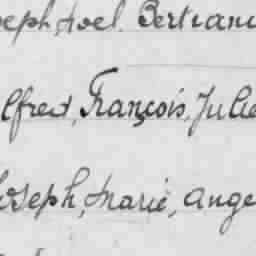 Joseph, Noel. Bertrand
Alfred, François, Julie
Joseph, Marie, Ange